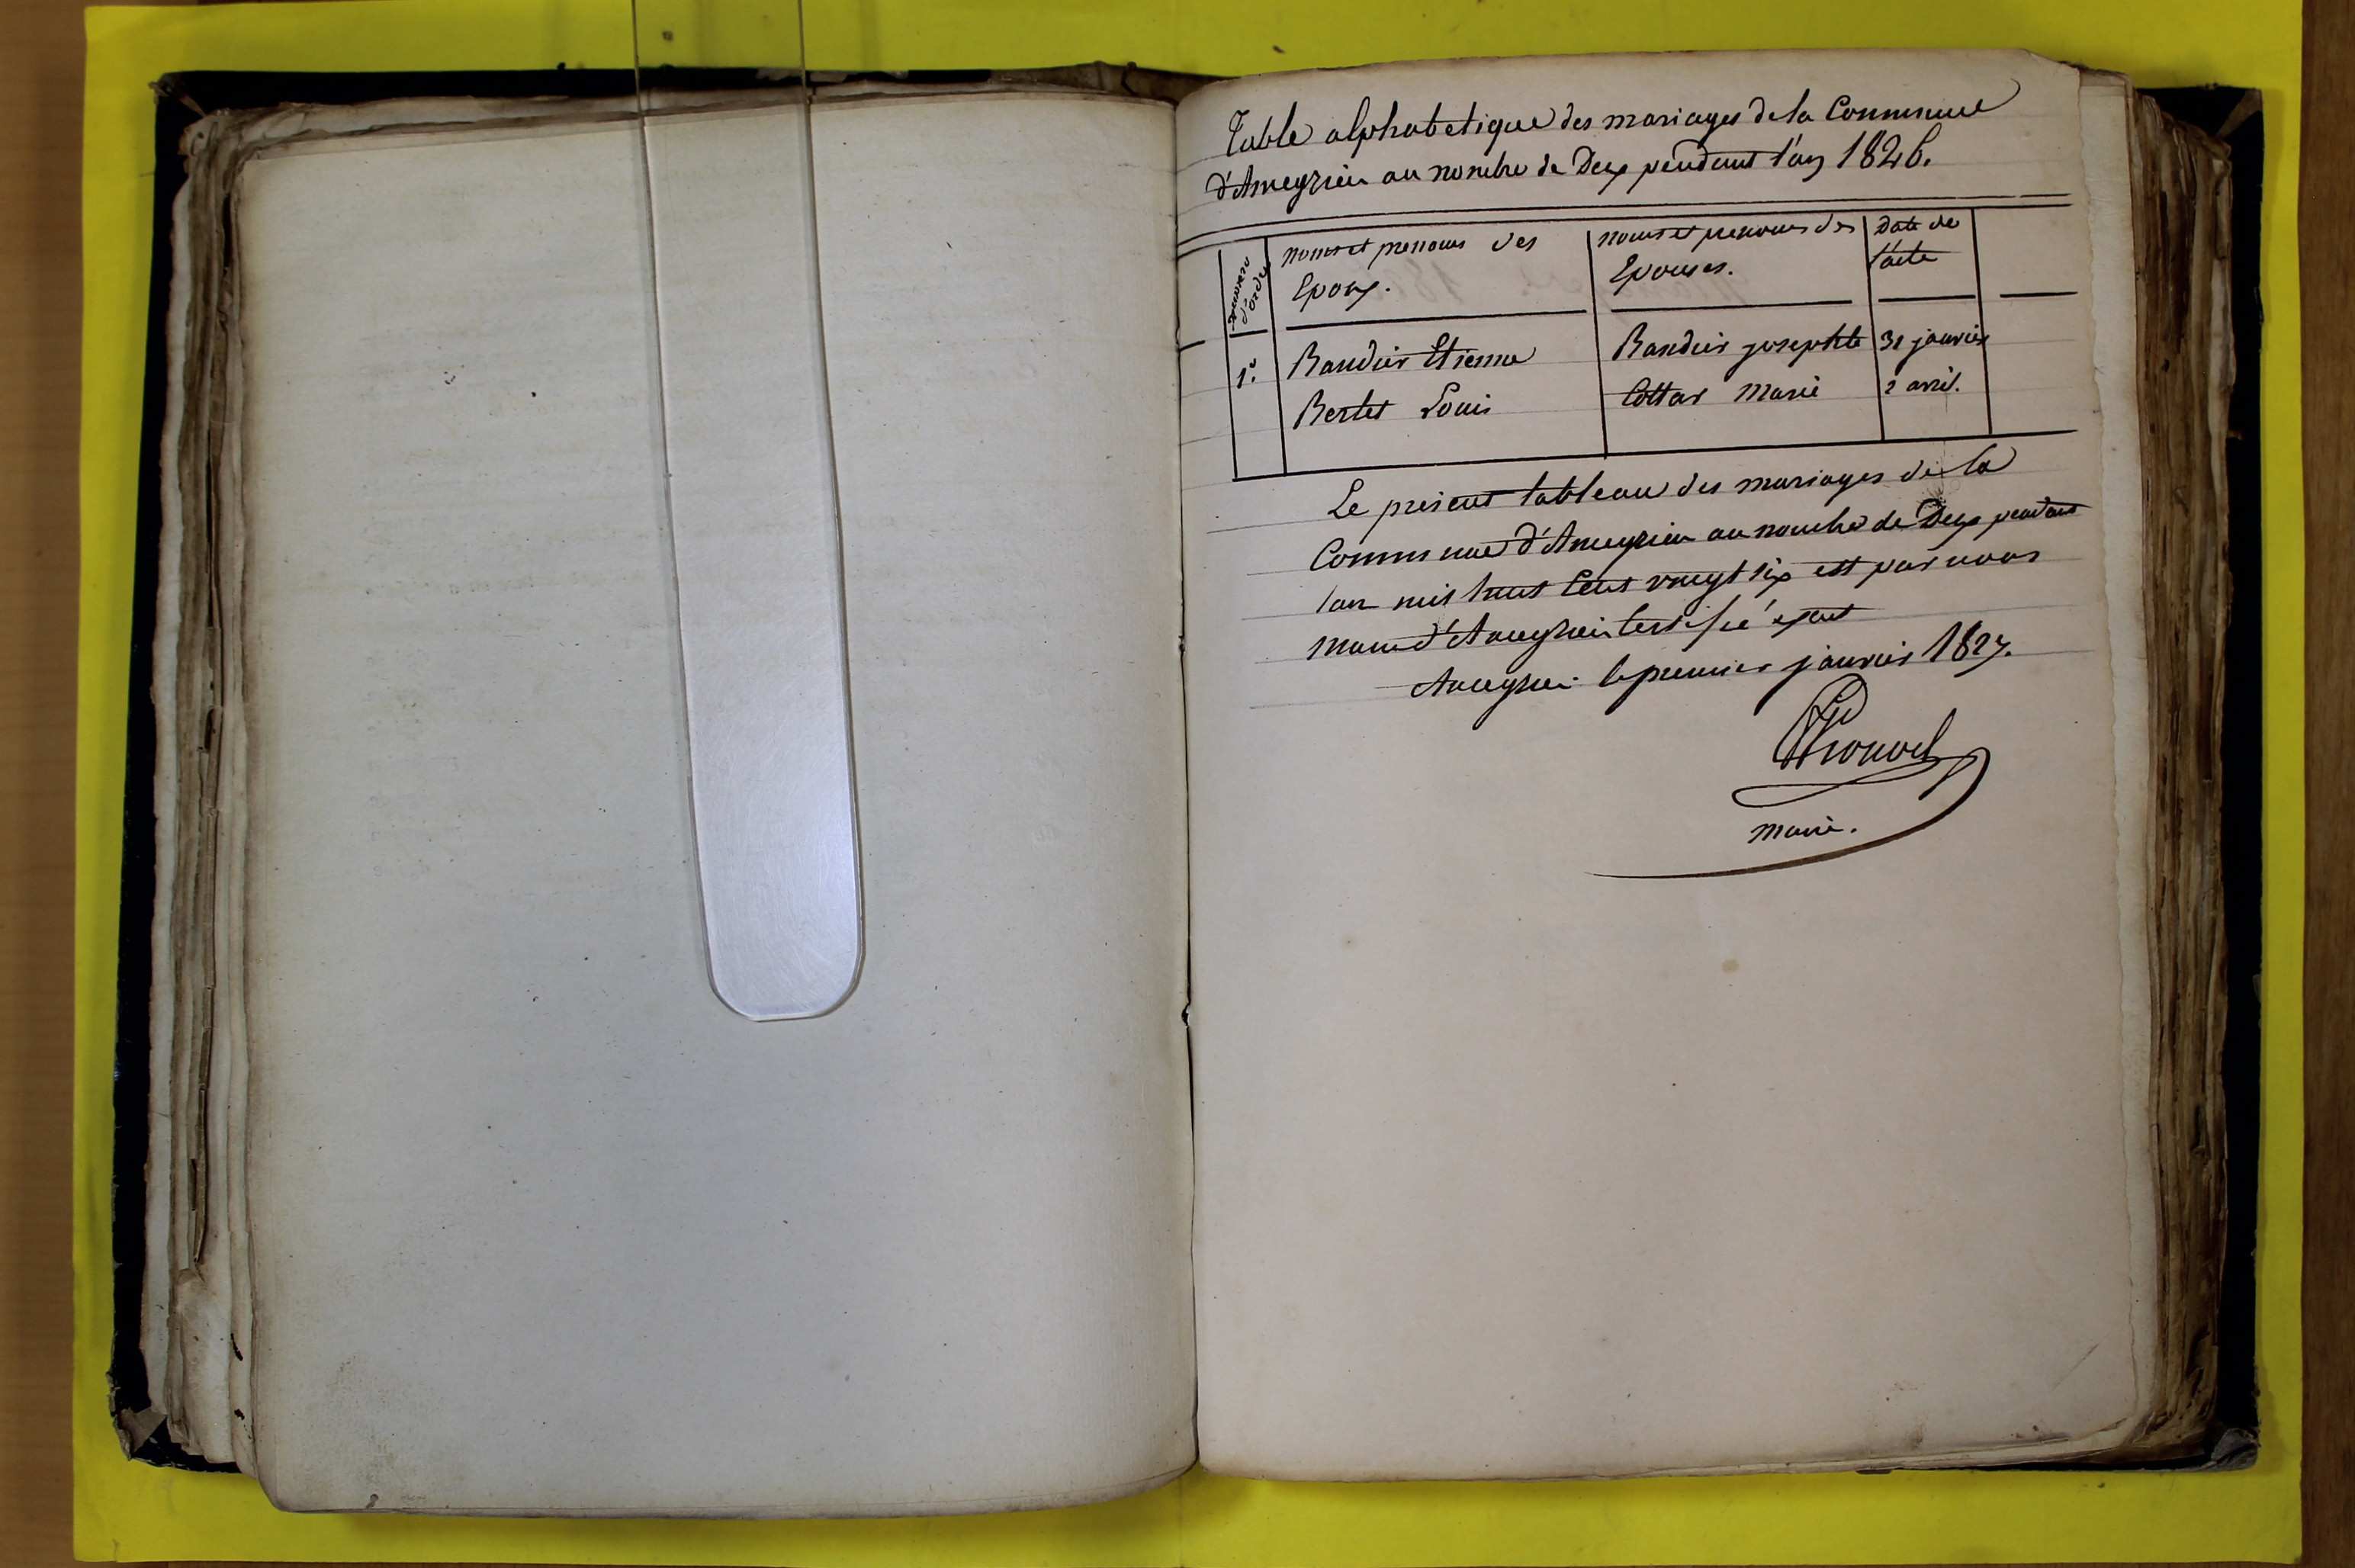 Table alphabetique des mariages de la Commune
d'Ameyzieu au nombre de Deux pendant l'an 1826.
numero d'ordre
noms et prenoms des Epoux.
noms et prenoms des Epouses.
Date de l'acte
1.° Baudier Etienne Baudier josephte 31 janvier
Bertet Louis Cottar Marie 2 avril.
Le present tableau des mariages de la
Commune d'Ameyzieu au nombre de Deux pendant
l'an mil huit Cent vingt six est par nous
maire d'Ameyzieu Certifié exact
Ameyzieu le premier janvier 1827.
maire.